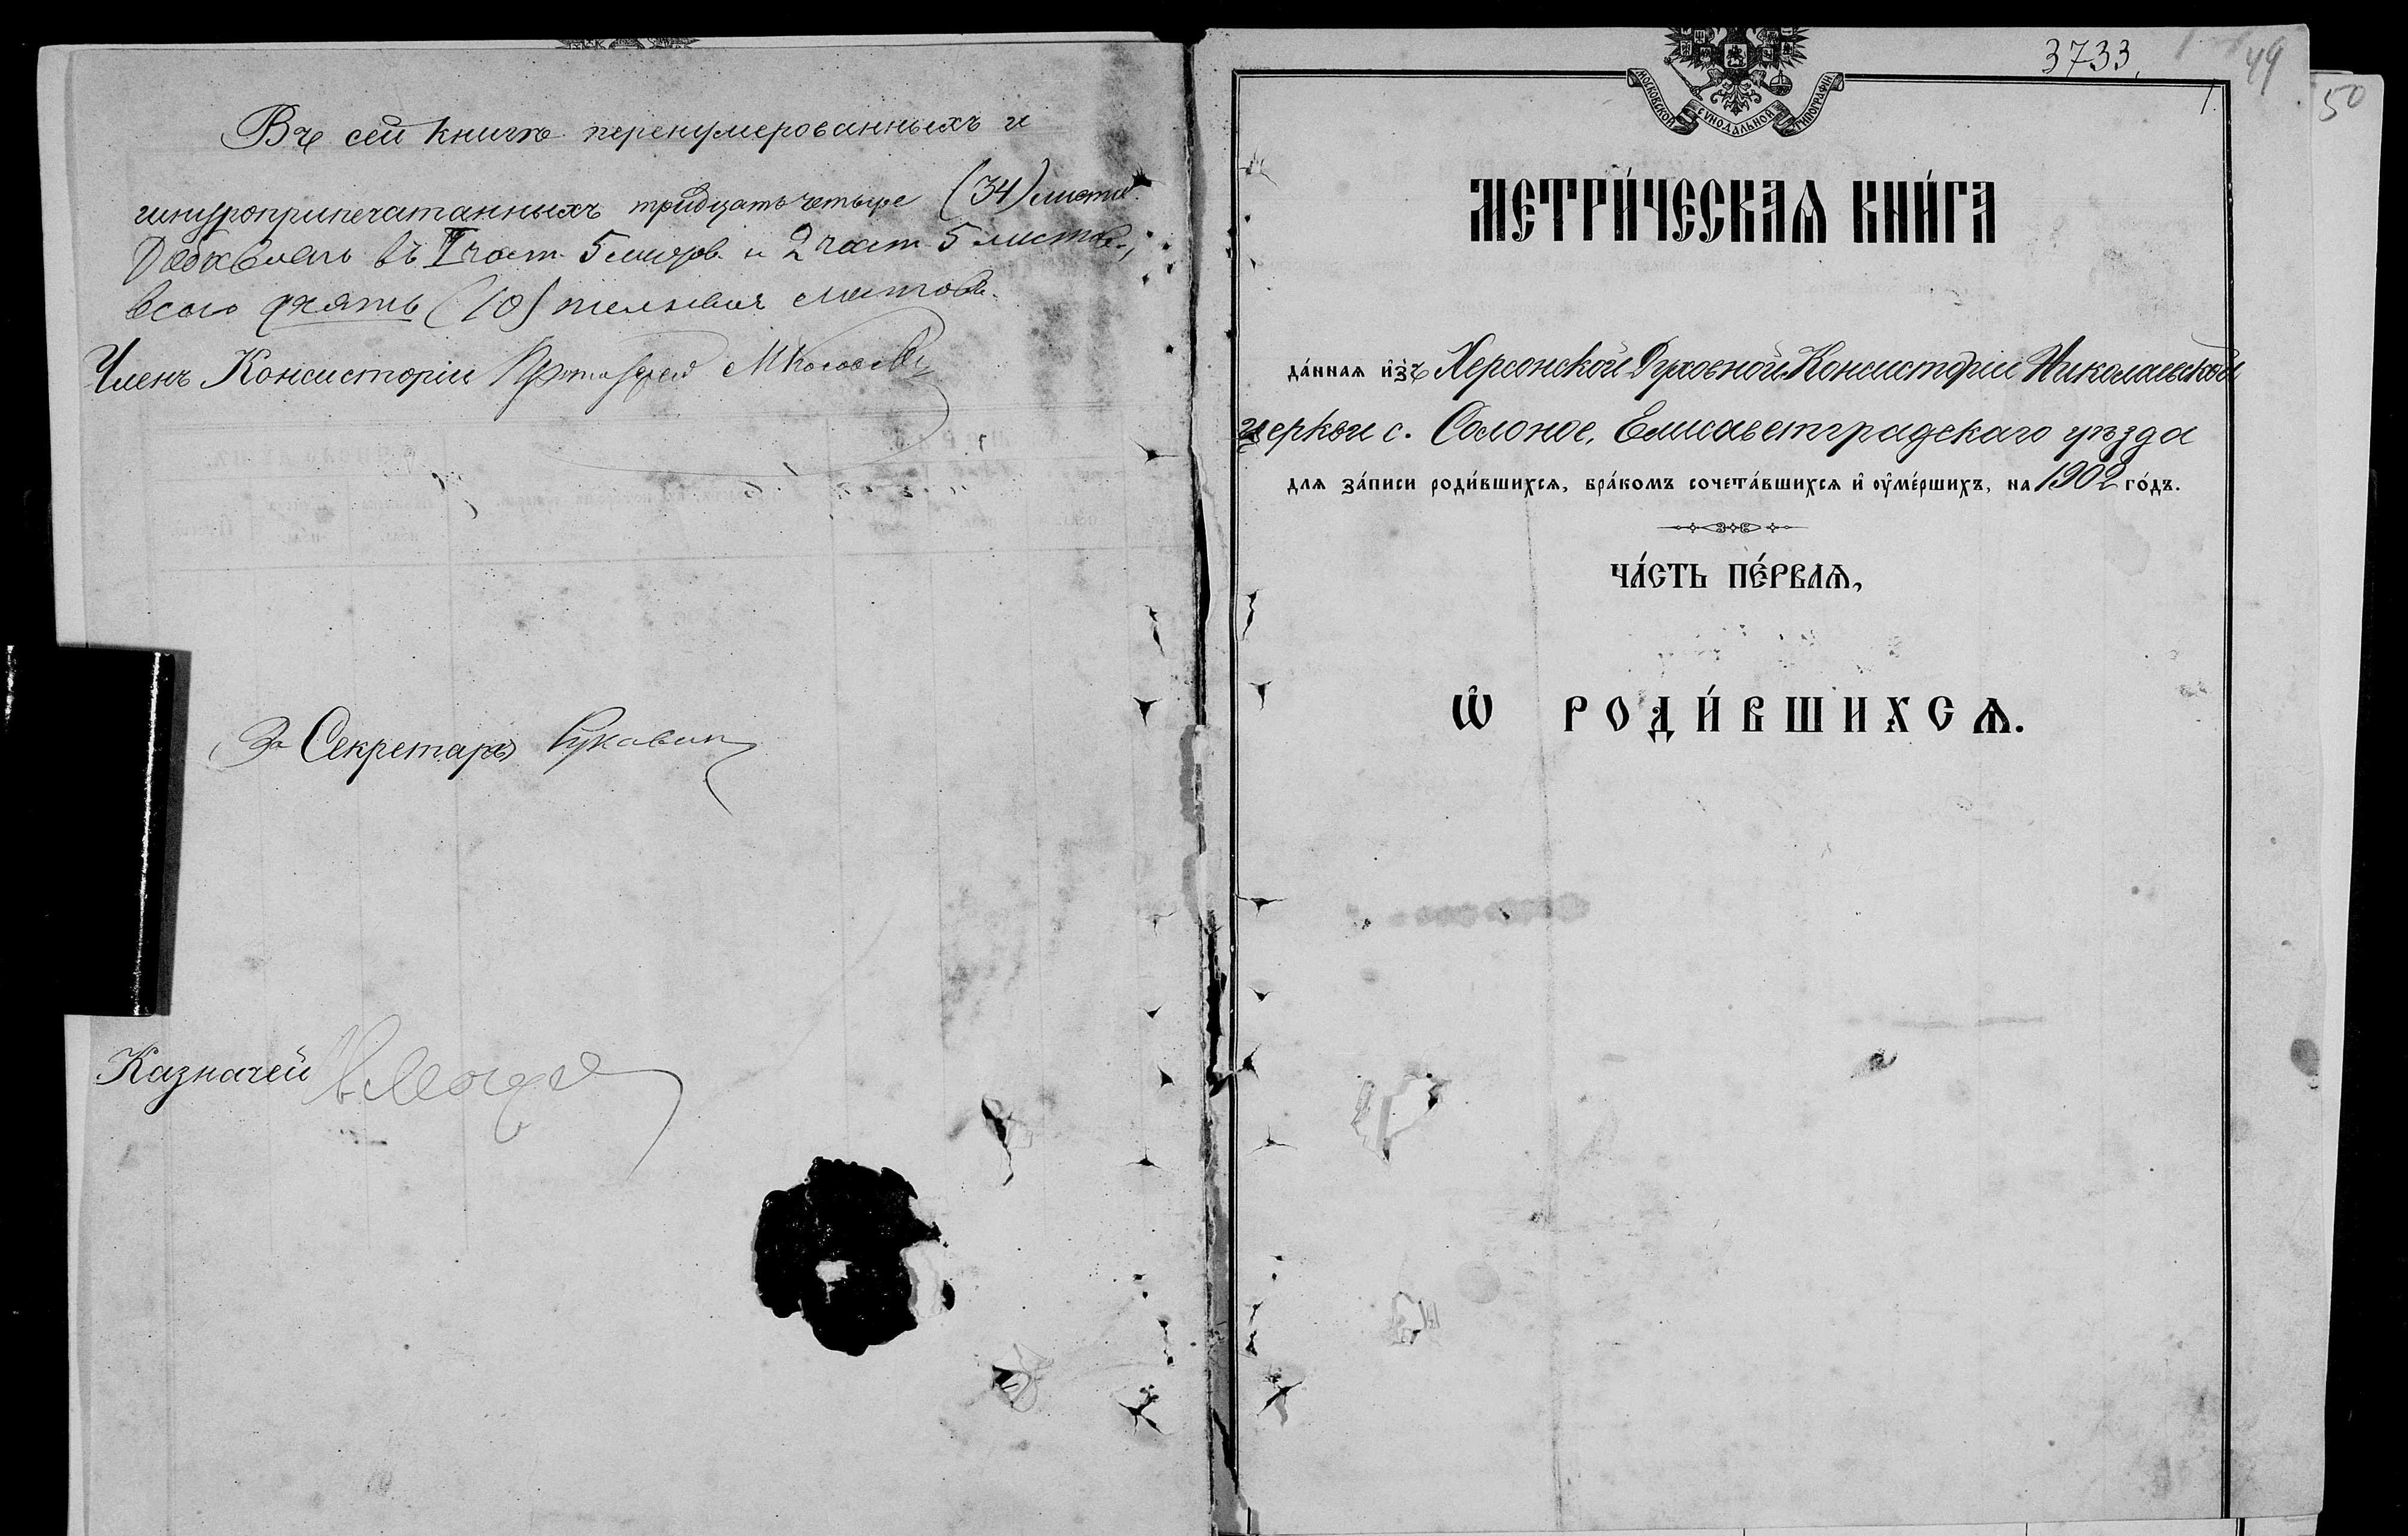 Въ сей книгѣ перенумерованныхъ и
шнуроприпечатанныхъ тридцать четыре (34) листа.
Добавлено въ I част. 5 листов. и 2 част. 5 листов.,
всего десять (10) листовъ.
Членъ Консисторіи Протоіерей М
За Секретаря
Казначей
3733.
49
50
1.
МОСКОВСКОЙ СѴНОДАЛЬНОЙ ТИПОГРАФІИ
МЕТРИ́ЧЕСКАѦ КНИ́ГА
да́ннаѧ и҆зъ Херсонской Духовной Консисторіи Николаевской
церкви с. Солоное, Елисаветградскаго уѣзда
длѧ за́писи роди́вшихсѧ, бра́комъ сочета́вшихсѧ и҆ оу҆ме́ршихъ, на 1902 го́дъ.
ЧА́СТЬ ПЕ́РВАѦ,
Ѽ РОДИ́ВШИХСѦ.